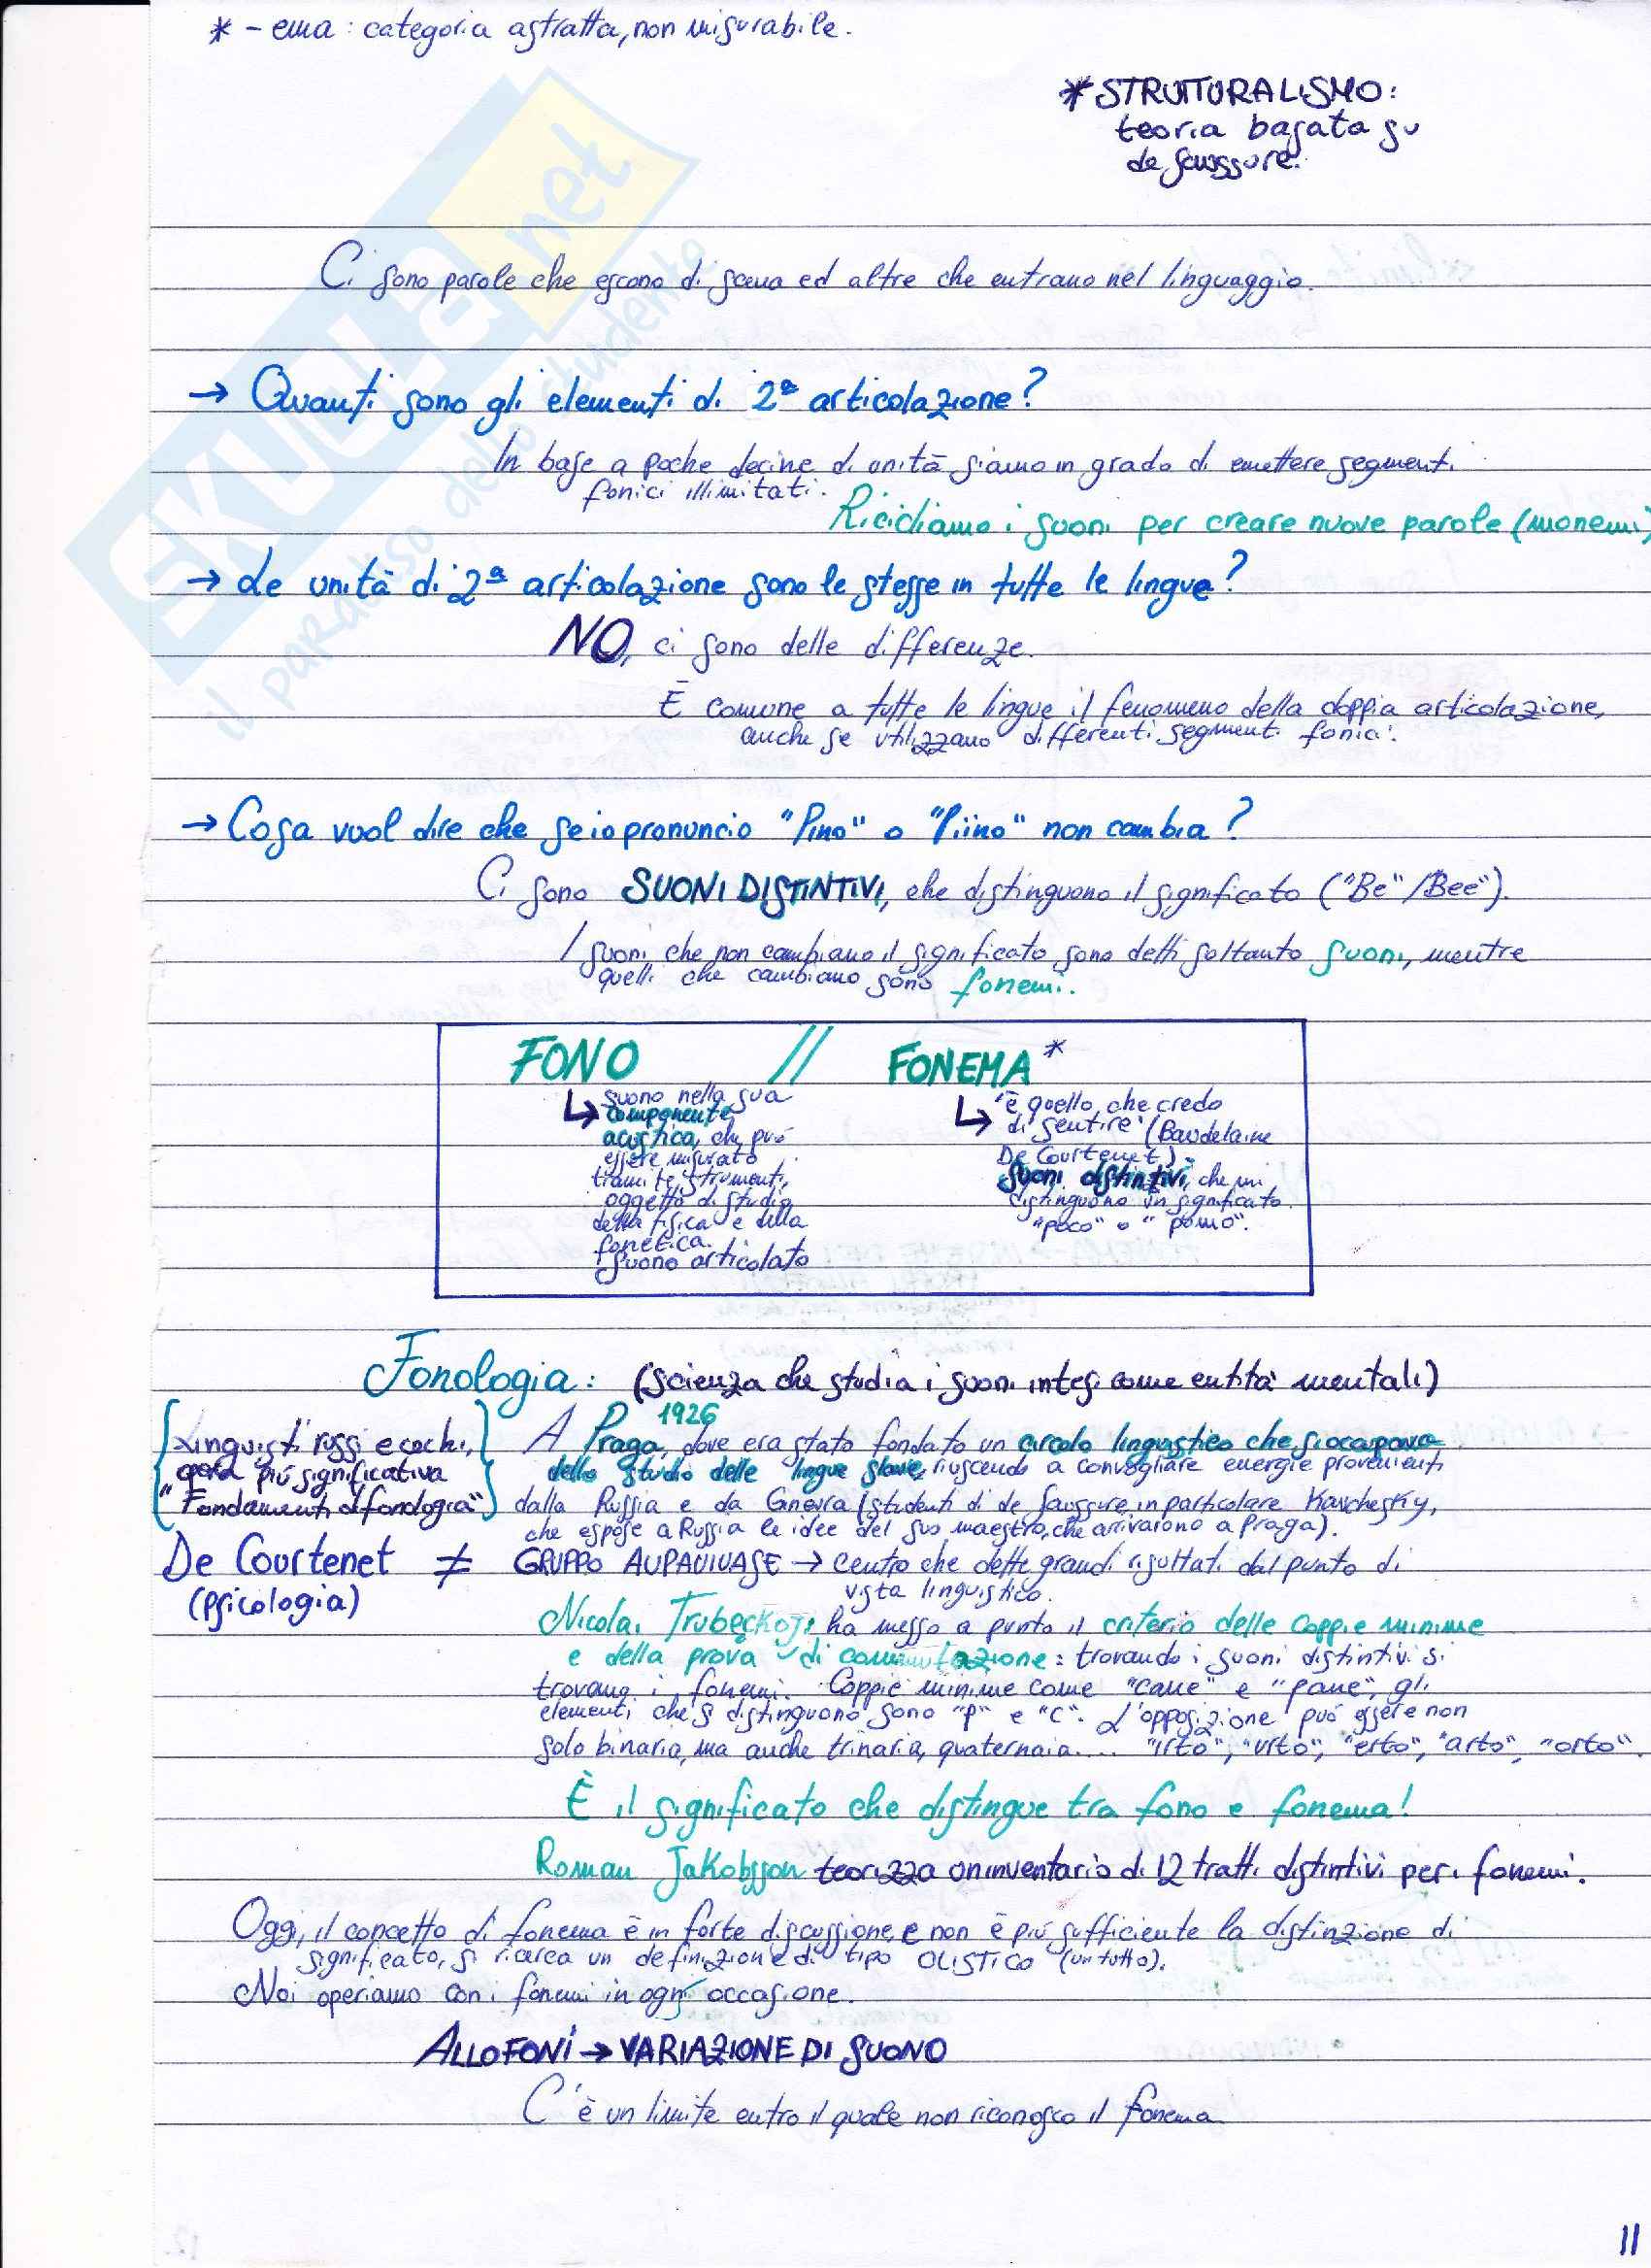 * - ema: categoria astratta, non misurabile.
* STRUTTURALISMO:
teoria basata su
de Saussure.
SKUOLA.net
il paradiso dello studente
Ci sono parole che escono di scena ed altre che entrano nel linguaggio.
→ Quanti sono gli elementi di 2ª articolazione?
In base a poche decine di unità siamo in grado di emettere segmenti
fonici illimitati.
Ricicliamo i suoni per creare nuove parole (monemi)
→ Le unità di 2ª articolazione sono le stesse in tutte le lingue?
NO, ci sono delle differenze.
È comune a tutte le lingue il fenomeno della doppia articolazione,
anche se utilizzano differenti segmenti fonici.
→ Cosa vuol dire che se io pronuncio "Pino" o "Piino" non cambia?
Ci sono SUONI DISTINTIVI, che distinguono il significato ("Be"/Bee").
I suoni che non cambiano il significato sono detti soltanto suoni, mentre
quelli che cambiano sono fonemi.
FONO // FONEMA*
↳ suono nella sua
componente
acustica, che può
essere misurato
tramite strumenti,
oggetto di studio
della fisica e della
fonetica.
Suono articolato
↳ "è quello che credo
di sentire" (Baudelaine
De Courtenet)
Suoni distintivi, che mi
distinguono un significato
"poco" o "pomo".
Fonologia: (scienza che studia i suoni intesi come entità mentali)
{Linguisti russi e cechi,
opera più significativa
"Fondamenti di fonologia"}
1926
A Praga, dove era stato fondato un circolo linguistico che si occupava
dello studio delle lingue slave, riuscendo a convogliare energie provenienti
dalla Russia e da Ginevra (studenti di de Saussure, in particolare
che espose a Russia le idee del suo maestro, che arrivarono a Praga).
De Courtenet ≠ GRUPPO → centro che dette grandi risultati dal punto di
(psicologia)
vista linguistico.
Nicolai Trubeckoj: ha messo a punto il criterio delle coppie minime
e della prova di commutazione: trovando i suoni distintivi si
trovano i fonemi. Coppie minime come "cane" e "pane", gli
elementi che si distinguono sono "p" e "c". L'opposizione può essere non
solo binaria, ma anche trinaria, quaternaia.... "irto", "urto", "erto", "arto", "orto".
È il significato che distingue tra fono e fonema!
Roman Jakobsson teorizza un inventario di 12 tratti distintivi per i fonemi.
Oggi, il concetto di fonema è in forte discussione e non è più sufficiente la distinzione di
significato, si ricerca un definizione di tipo OLISTICO (un tutto).
Noi operiamo con i fonemi in ogni occasione.
ALLOFONI → VARIAZIONE DI SUONO
C'è un limite entro il quale non riconosco il fonema
11